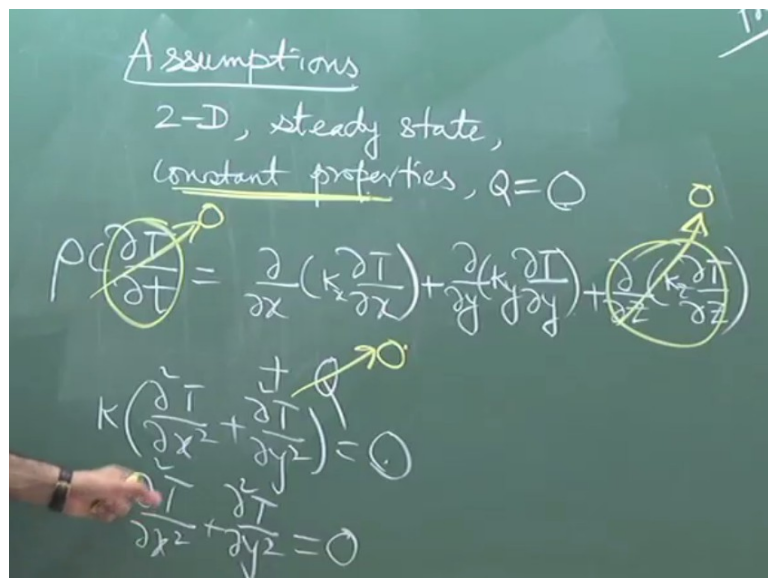 Assumptions
2-D, steady state,
constant properties, Q = 0
ρC ∂T/∂t = ∂/∂x (kₓ ∂T/∂x) + ∂/∂y (k_y ∂T/∂y) + ∂/∂z (k_z ∂T/∂z)
0
0
+ Q
0
K (∂²T/∂x² + ∂²T/∂y²) = 0
∂²T/∂x² + ∂²T/∂y² = 0